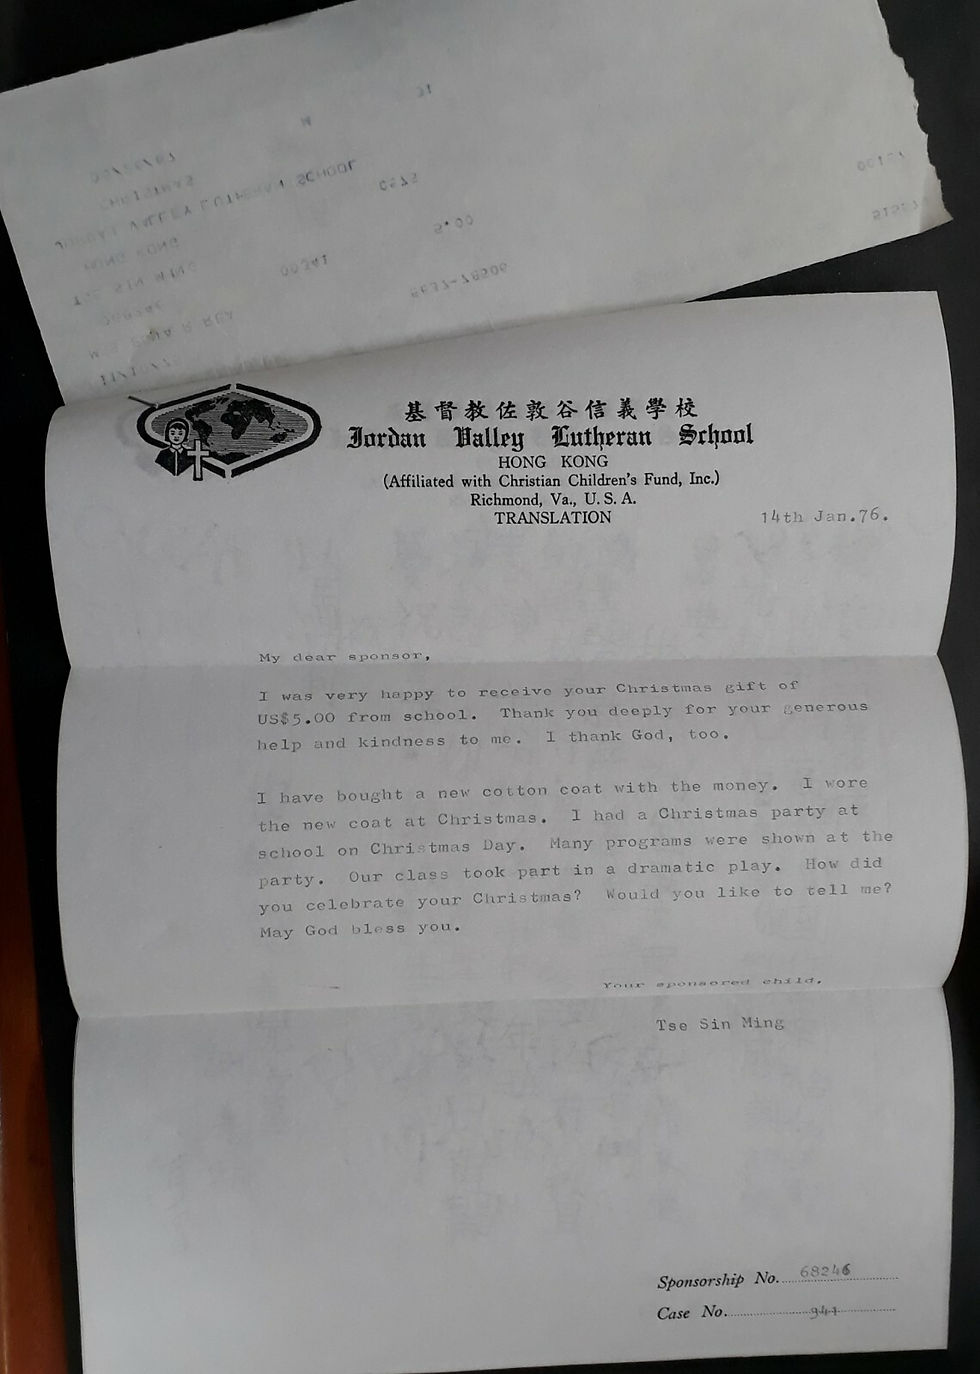 CHRISTMAS
JORDAN VALLEY LUTHERAN SCHOOL
HONG KONG
TSE SIN MING
00341
5.00
基督教佐敦谷信義學校
Jordan Valley Lutheran School
HONG KONG
(Affiliated with Christian Children's Fund, Inc.)
Richmond, Va., U. S. A.
TRANSLATION
14th Jan.76.
My dear sponsor,
I was very happy to receive your Christmas gift of
US$5.00 from school. Thank you deeply for your generous
help and kindness to me. I thank God, too.
I have bought a new cotton coat with the money. I wore
the new coat at Christmas. I had a Christmas party at
school on Christmas Day. Many programs were shown at the
party. Our class took part in a dramatic play. How did
you celebrate your Christmas? Would you like to tell me?
May God bless you.
Your sponsored child,
Tse Sin Ming
Sponsorship No. 68246
Case No. 341